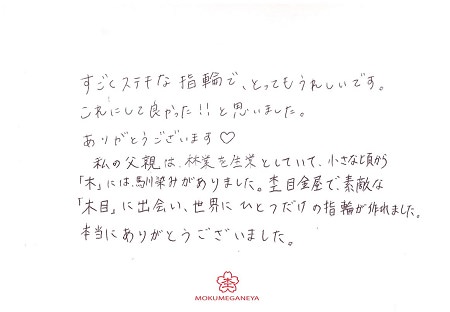 すごくステキな指輪で、とってもうれしいです。
これにして良かった!!と思いました。
ありがとうございます♡
私の父親は、林業を生業としていて、小さな頃から
「木」には馴染みがありました。杢目金屋で、素敵な
「木目」に出会い、世界にひとつだけの指輪が作れました。
本当にありがとうございました。
杢
MOKUMEGANEYA